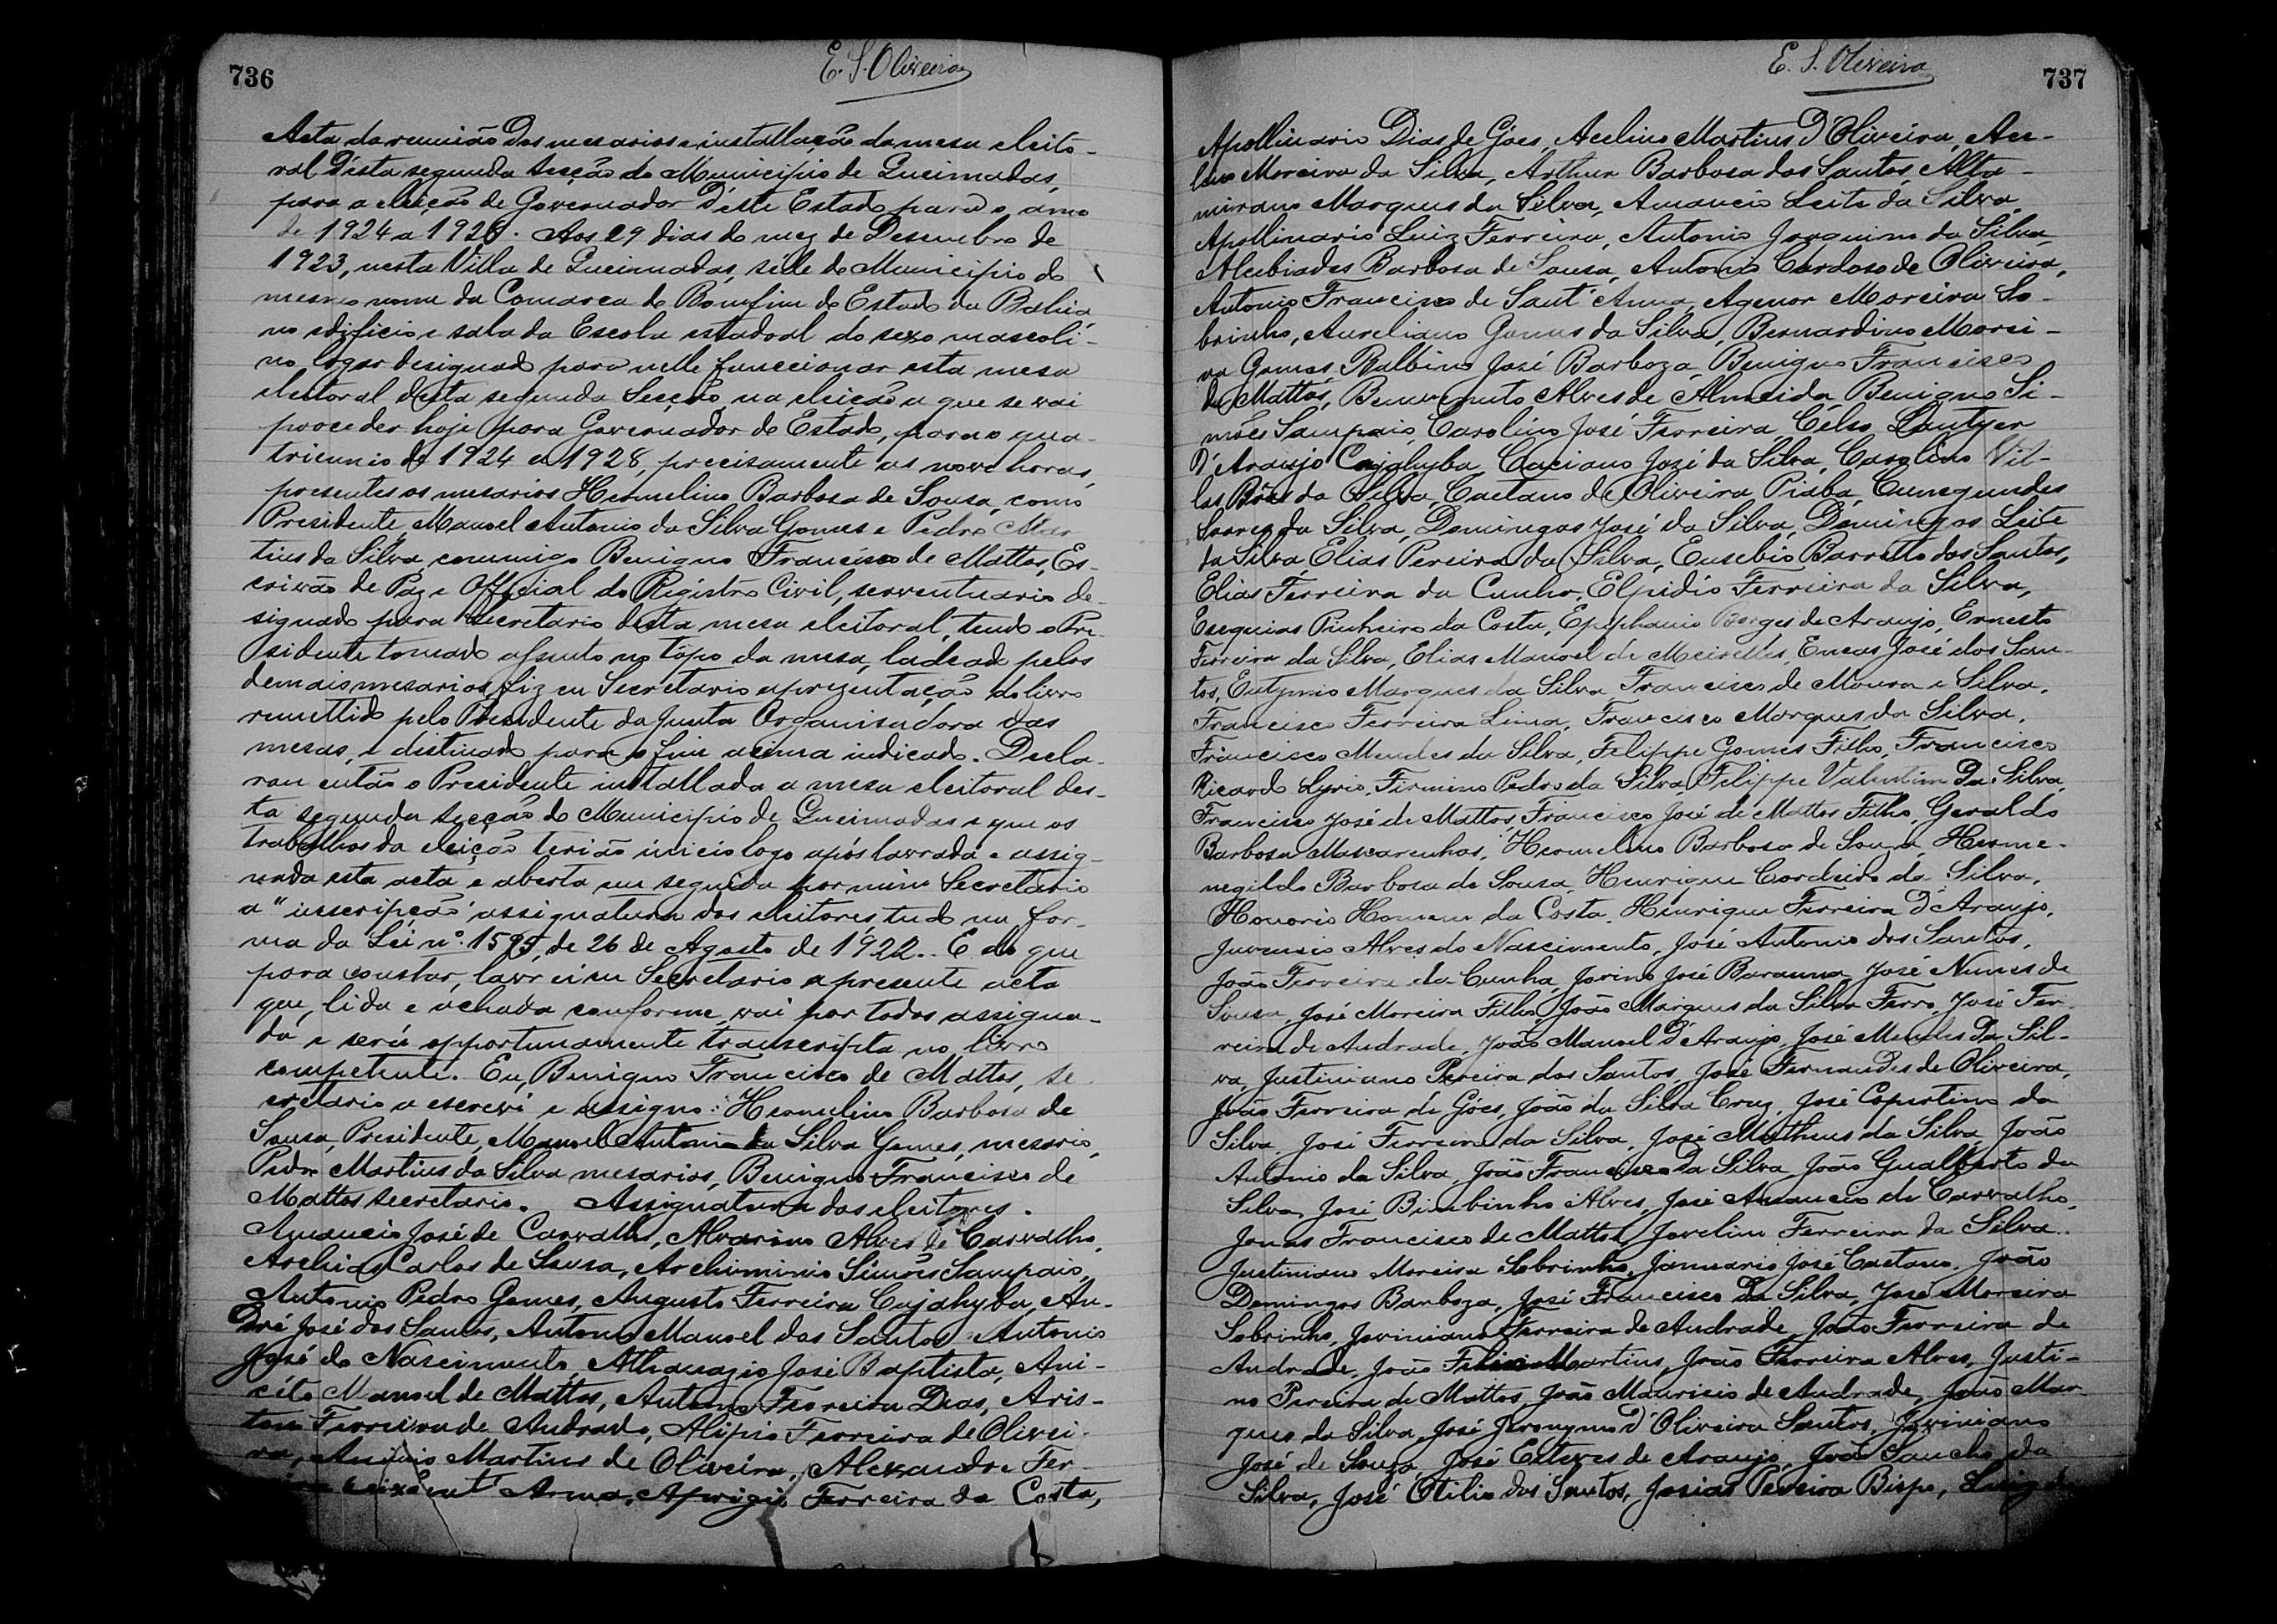 736
E. S. Oliveira
Acta da reunião dos mesarios e installação da mesa eleito-
ral d'esta segunda secção do Municipio de Queimadas,
para a eleição de Governador d'este Estado para o anno
de 1924 a 1928. Aos 29 dias do mez de Desembro de
1923, nesta Villa de Queimadas, séde do Municipio do
mesmo nome da Comarca do Bomfim do Estado da Bahia,
no edificio e sala da Escola estadoal do sexo mascoli-
no logar designado para nelle funccionar esta mesa
eleitoral desta segunda Secção, na eleição a que se vai
proceder hoje para Governador do Estado, para o qua-
triennio de 1924 a 1928, precisamente as nove horas,
presentes os mesarios Hermelino Barbosa de Sousa, como
Presidente, Manoel Antonio da Silva Gomes e Pedro Mar
tins da Silva, commigo Benigno Francisco de Mattos, Es-
crivão de Paz e Official do Registro Civil, serventuario de-
signado para secretario desta mesa eleitoral, tendo o Pre-
sidente tomado assento no tôpo da mesa, ladeado pelos
demais mesarios, fiz eu Secretario aprezentação do livro
remettido pelo Presidente da Junta Organisadora das
mesas, e distinado para o fim acima indicado. Decla-
rou então o Presidente installada a mesa eleitoral des-
ta segunda secção do Municipio de Queimadas e que os
trabalhos da eleição terião inicio logo após lavrada e assig-
nada esta acta e aberta em seguida por mim Secretario
a "inscripção" assignatura dos eleitores, tudo na for-
ma da Lei nº. 1595, de 26 de Agosto de 1922.. E do que
para constar, lavrei eu Secretario a presente acta
que, lida e achada conforme, vai por todos assigna-
da e será opportunamente transcripta no livro
competente. Eu, Benigno Francisco de Mattos, se-
cretario a escrevi e assigno: Hermelino Barbosa de
Sousa, Presidente, Manoel Antonio da Silva Gomes, mesario,
Pedro Martins da Silva mesarios, Benigno Francisco de
Mattos secretario. Assignatura dos eleitores.
Amancio José de Carvalho, Alvarino Alves de Carvalho,
Archias Carlos de Sousa, Archiminio Simões Sampaio,
Antonio Pedro Gomes, Augusto Ferreira Cujahyba, An-
dré José dos Santos, Antonio Manoel dos Santos Antonio
José do Nascimento Athanazio José Baptista, Ani-
cêto Manoel de Mattos, Antonio Ferreira Dias, Aris-
ton Ferreira de Andrade, Alipio Ferreira de Olivei-
ra, Martins de Oliveira, Alexandre Fer-
Sant' Anna, Aprigio Ferreira da Costa,
E. S. Oliveira
737
Apollinario Dias de Góes, Avelino Martins D'Oliveira, Ave-
lino Moreira da Silva, Arthur Barbosa dos Santos, Alta-
mirano Marques da Silva, Amancio Leite da Silva,
Apollinario Luiz Ferreira, Antonio Joaquim da Silva,
Alcebiades Barbosa de Sousa, Antonio Cardoso de Oliveira,
Antonio Francisco de Sant' Anna, Agenor Moreira So-
brinho, Aureliano Gomes da Silva, Bernardino Morei-
ra Gomes, Balbino José Barboza, Benigno Francisco
de Mattos, Benvenuto Alves de Almeida, Benigno Si-
mões Sampaio, Carolino José Ferreira, Célso Lantyer
D'Araujo Cajahyba, Caciano José da Silva, Carolino Vil-
las Bôas da Silva, Caetano de Oliveira Piaba, Cunegundes
Soares da Silva, Domingos José da Silva, Domingos Leite
da Silva Elias Pereira da Silva, Eusebio Barretto dos Santos,
Elias Ferreira da Cunha, Elpidio Ferreira da Silva,
Esequias Pinheiro da Costa, Epiphanio Borges de Araujo, Ernesto
Ferreira da Silva, Elias Manoel de Meirelles, Eneas José dos San-
tos, Eutymio Marques da Silva Francisco de Moura e Silva,
Francisco Ferreira Lima, Francisco Marques da Silva,
Francisco Mendes da Silva, Felippe Gomes Filho, Francisco
Ricardo Lyrio, Firmino Pedro da Silva Felippe Valentim Da Silva,
Francisco José de Mattos, Francisco José de Mattos Filho, Geraldo
Barbosa Mascarenhas, Hermelino Barbosa de Souza, Herme-
negildo Barbosa de Sousa, Henrique Cordeiro da Silva,
Honorio Homem da Costa, Henrique Ferreira D'Araujo,
Juvencio Alves do Nascimento, José Antonio dos Santos,
João Ferreira da Cunha, Jorino José Barauna, José Nunes de
Sousa, José Moreira Filho, João Marques da Silva Ferro, José Fer-
reira de Andrade, João Manoel D'Araujo, José Mendes Da Sil-
va, Justiniano Pereira dos Santos, José Fernandes de Oliveira,
João Ferreira de Góes, João da Silva Cruz, José Copertino da
Silva, José Ferreira da Silva, José Matheus da Silva, João
Antonio da Silva, João Francisco Da Silva João Gualberto da
Silva, José Bimbinho Alves, José Amancio de Carvalho,
Jonas Francisco de Mattos, Jovelino Ferreira da Silva..
Justiniano Moreira Sobrinho, Januario José Caetano, João
Domingos Barboza, José Francisco Da Silva, José Moreira
Sobrinho, Joviniano Ferreira de Andrade, João Ferreira de
Andrade, João Felix Martins, João Ferreira Alves, Justi-
no Pereira de Mattos, João Mauricio de Andrade, João Mar-
ques da Silva, José Jeronymo D'Oliveira Santos, Joviniano
José de Souza, José Esteves de Araujo, João Sancho da
Silva, José Otilio dos Santos, Josias Pereira Bispo, Luiz de